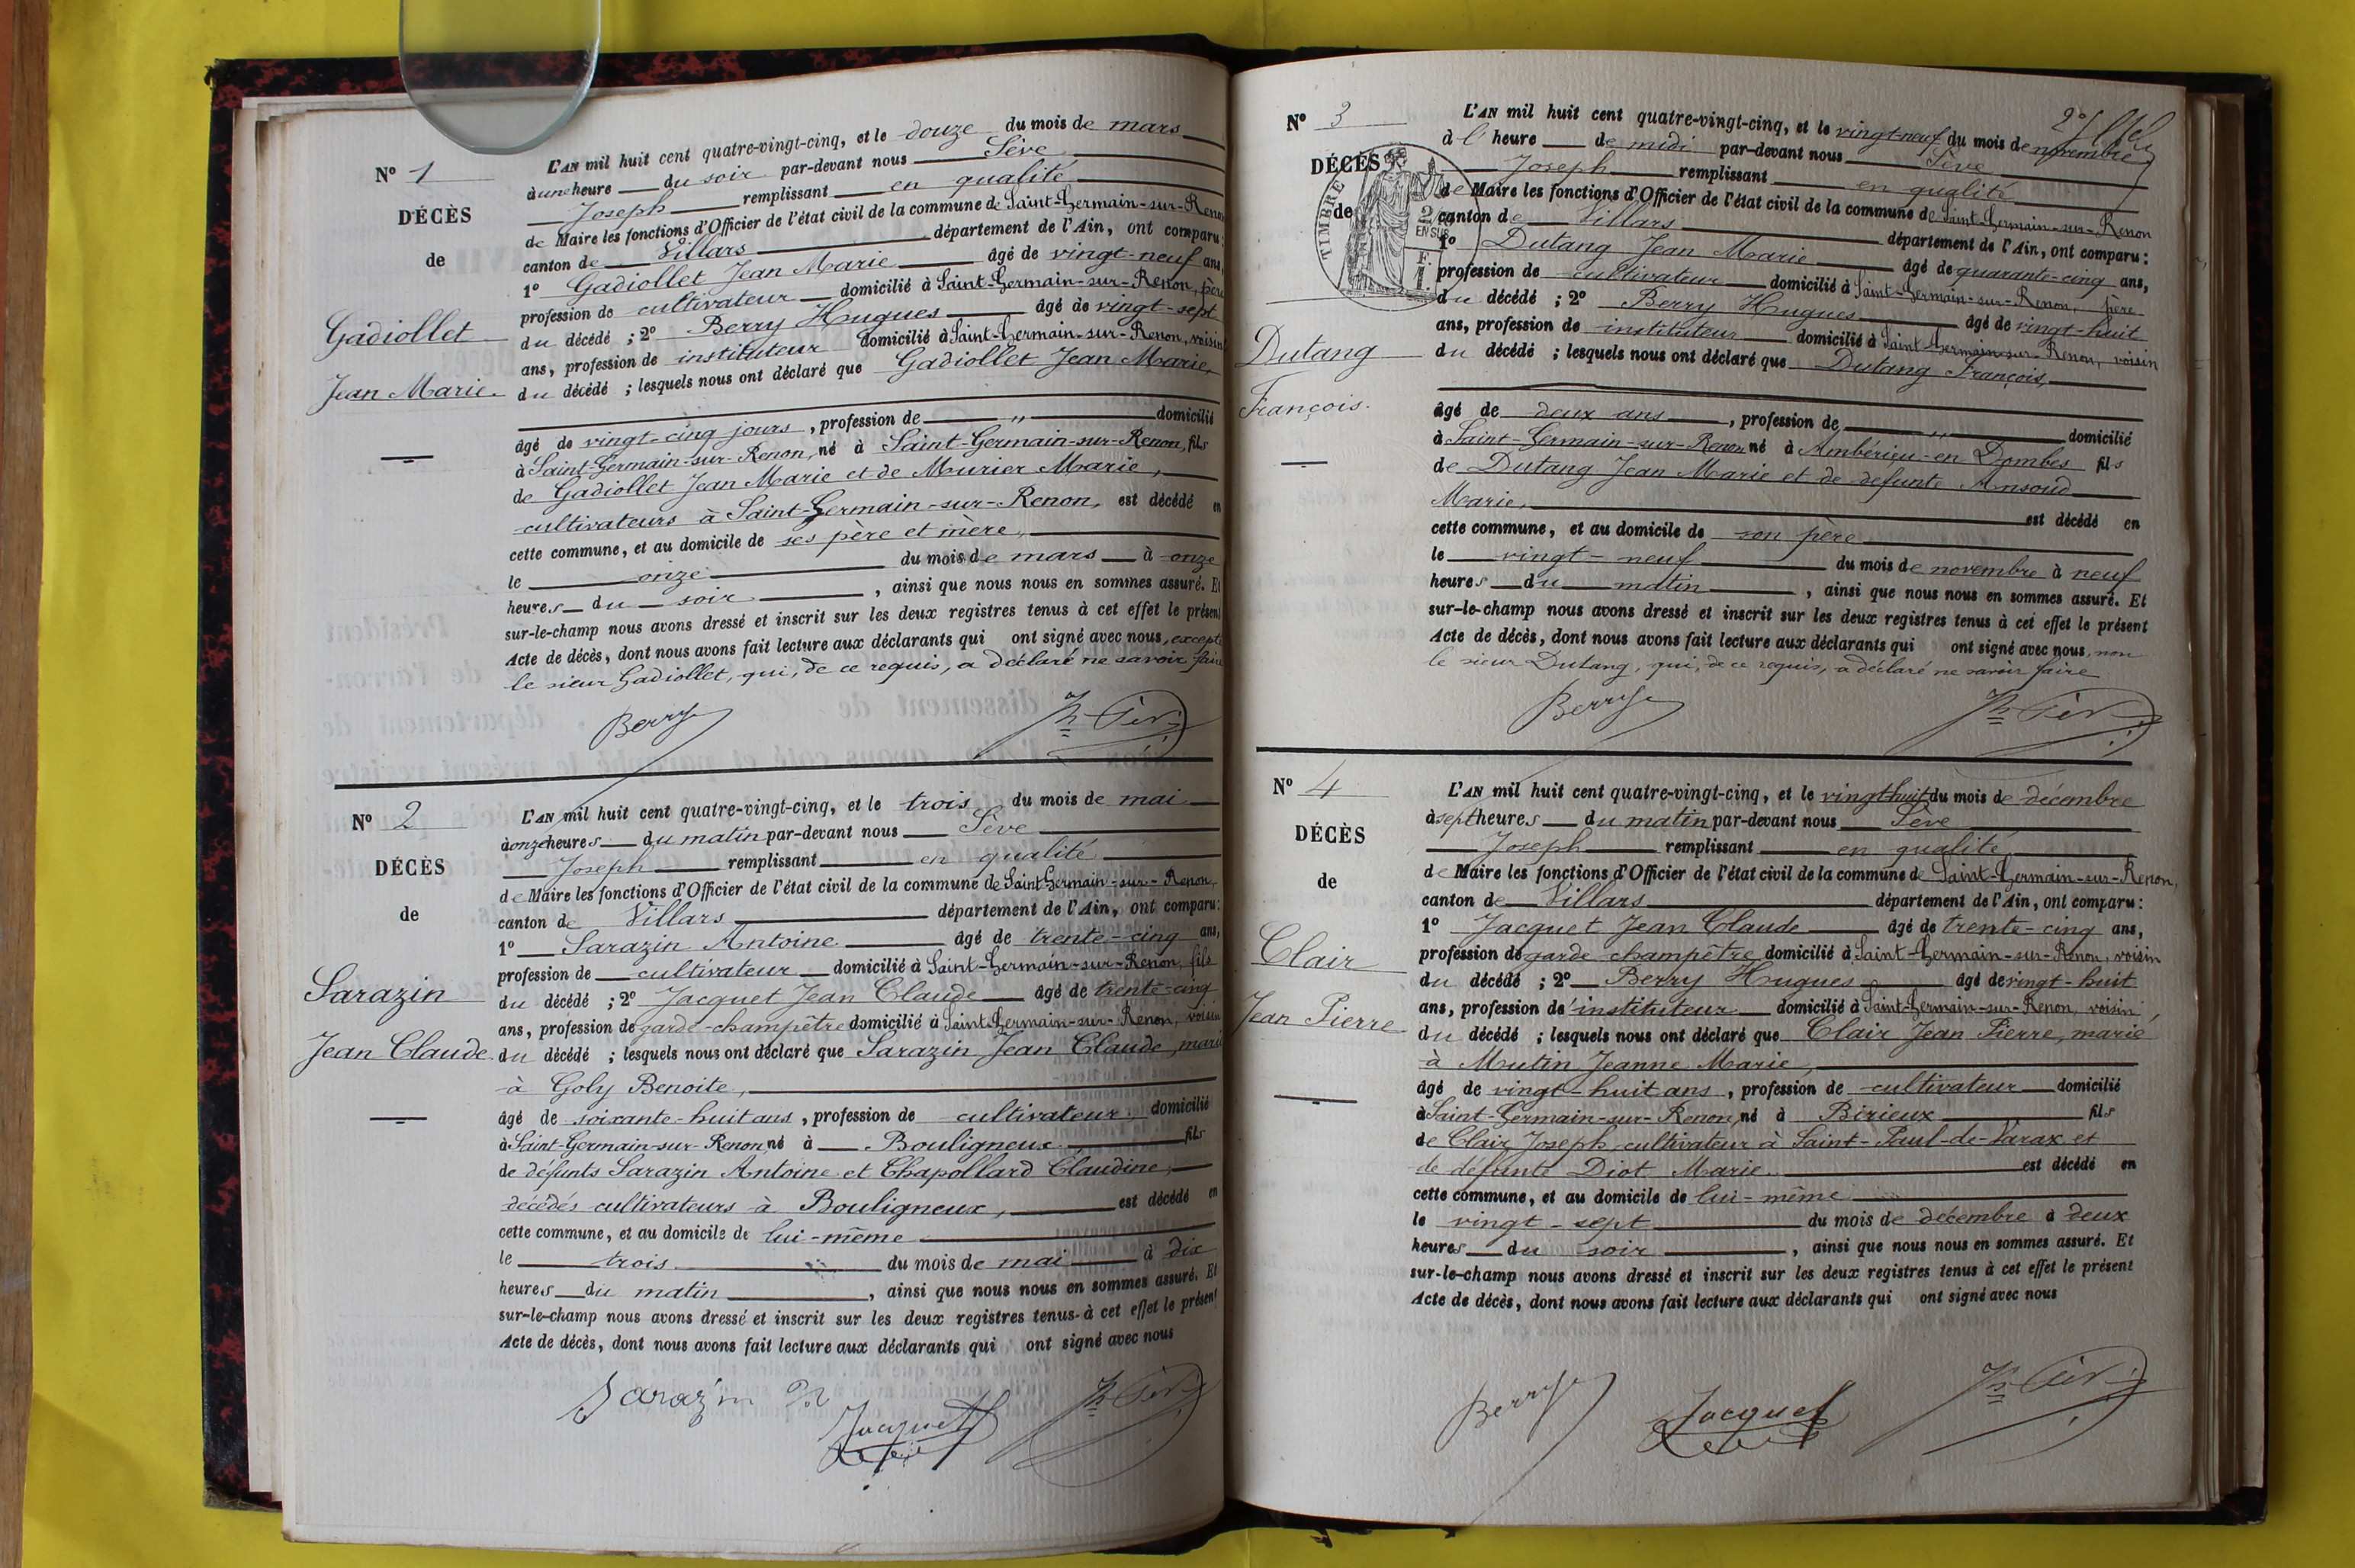 L'AN mil huit cent quatre-vingt-cinq, et le douze du mois de mars
N° 1
à une heure du soir par-devant nous Sève
Joseph remplissant en qualité
DÉCÈS
de Maire les fonctions d'Officier de l'état civil de la commune de Saint-Germain-sur-Renon
canton de Villars département de l'Ain, ont comparu :
de
1° Gadiollet Jean Marie âgé de vingt-neuf ans,
profession de cultivateur domicilié à Saint-Germain-sur-Renon, père
Gadiollet
du décédé ; 2° Berry Hugues âgé de vingt-sept
ans, profession de instituteur domicilié à Saint-Germain-sur-Renon, voisin
Jean Marie
du décédé ; lesquels nous ont déclaré que Gadiollet Jean Marie,
âgé de vingt-cinq jours, profession de " domicilié
à Saint-Germain-sur-Renon, né à Saint-Germain-sur-Renon, fils
de Gadiollet Jean Marie et de Murier Marie,
cultivateurs à Saint-Germain-sur-Renon, est décédé en
cette commune, et au domicile de ses père et mère,
le onze du mois de mars à onze
heures du soir, ainsi que nous nous en sommes assuré. Et
sur-le-champ nous avons dressé et inscrit sur les deux registres tenus à cet effet le présent
Acte de décès, dont nous avons fait lecture aux déclarants qui ont signé avec nous, excepté
le sieur Gadiollet, qui, de ce requis, a déclaré ne savoir faire
Berry Jh Sève
N° 2
L'AN mil huit cent quatre-vingt-cinq, et le trois du mois de mai
à onze heures du matin par-devant nous Sève
DÉCÈS
Joseph remplissant en qualité
de Maire les fonctions d'Officier de l'état civil de la commune de Saint-Germain-sur-Renon,
de
canton de Villars département de l'Ain, ont comparu :
1° Sarazin Antoine âgé de trente-cinq ans,
profession de cultivateur domicilié à Saint-Germain-sur-Renon, fils
Sarazin
du décédé ; 2° Jacquet Jean Claude âgé de trente-cinq
ans, profession de garde-champêtre domicilié à Saint-Germain-sur-Renon, voisin
Jean Claude
du décédé ; lesquels nous ont déclaré que Sarazin Jean Claude, marié
à Goly Benoite,
âgé de soixante-huit ans, profession de cultivateur domicilié
à Saint-Germain-sur-Renon, né à Bouligneux fils
de défunts Sarazin Antoine et Chapollard Claudine,
décédés cultivateurs à Bouligneux, est décédé en
cette commune, et au domicile de lui-même
le trois du mois de mai à dix
heures du matin, ainsi que nous nous en sommes assuré. Et
sur-le-champ nous avons dressé et inscrit sur les deux registres tenus à cet effet le présent
Acte de décès, dont nous avons fait lecture aux déclarants qui ont signé avec nous
Sarazin
Jacquet Jh Sève
N° 3
L'AN mil huit cent quatre-vingt-cinq, et le vingt-neuf du mois de novembre
à l'heure de midi par-devant nous Sève
DÉCÈS
Joseph remplissant en qualité
de Maire les fonctions d'Officier de l'état civil de la commune de Saint-Germain-sur-Renon
TIMBRE
2
EN SUS
de
canton de Villars département de l'Ain, ont comparu :
1° Dutang Jean Marie âgé de quarante-cinq ans,
profession de cultivateur domicilié à Saint-Germain-sur-Renon, père
du décédé ; 2° Berry Hugues âgé de vingt-huit
ans, profession de instituteur domicilié à Saint-Germain-sur-Renon, voisin
Dutang
du décédé ; lesquels nous ont déclaré que Dutang François,
François.
âgé de deux ans, profession de " domicilié
à Saint-Germain-sur-Renon né à Ambérieu-en-Dombes fils
de Dutang Jean Marie et de défunte Ansoud
Marie, est décédé en
cette commune, et au domicile de son père
le vingt-neuf du mois de novembre à neuf
heures du matin, ainsi que nous nous en sommes assuré. Et
sur-le-champ nous avons dressé et inscrit sur les deux registres tenus à cet effet le présent
Acte de décès, dont nous avons fait lecture aux déclarants qui ont signé avec nous, non
le sieur Dutang, qui, de ce requis, a déclaré ne savoir faire
Berry Jh Sève
N° 4
L'AN mil huit cent quatre-vingt-cinq, et le vingt-huit du mois de décembre
à sept heures du matin par-devant nous Sève
DÉCÈS
Joseph remplissant en qualité
de Maire les fonctions d'Officier de l'état civil de la commune de Saint-Germain-sur-Renon,
de
canton de Villars département de l'Ain, ont comparu :
1° Jacquet Jean Claude âgé de trente-cinq ans,
Clair
profession de garde champêtre domicilié à Saint-Germain-sur-Renon, voisin
du décédé ; 2° Berry Hugues âgé de vingt-huit
Jean Pierre
ans, profession d'instituteur domicilié à Saint-Germain-sur-Renon, voisin
du décédé ; lesquels nous ont déclaré que Clair Jean Pierre, marié
à Mutin Jeanne Marie,
âgé de vingt-huit ans, profession de cultivateur domicilié
à Saint-Germain-sur-Renon, né à Birieux fils
de Clair Joseph, cultivateur à Saint-Paul-de-Varax et
de défunte Diot Marie. est décédé en
cette commune, et au domicile de lui-même
le vingt-sept du mois de décembre à deux
heures du soir, ainsi que nous nous en sommes assuré. Et
sur-le-champ nous avons dressé et inscrit sur les deux registres tenus à cet effet le présent
Acte de décès, dont nous avons fait lecture aux déclarants qui ont signé avec nous
Berry Jacquet Jh Sève